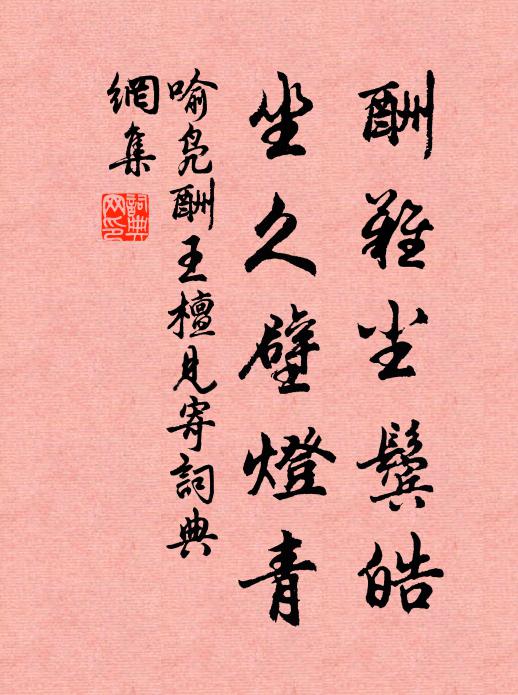 酬難尘鬢皓
坐久壁燈青
喻鳧酬王檀見寄詞典
網集
詞典
网印